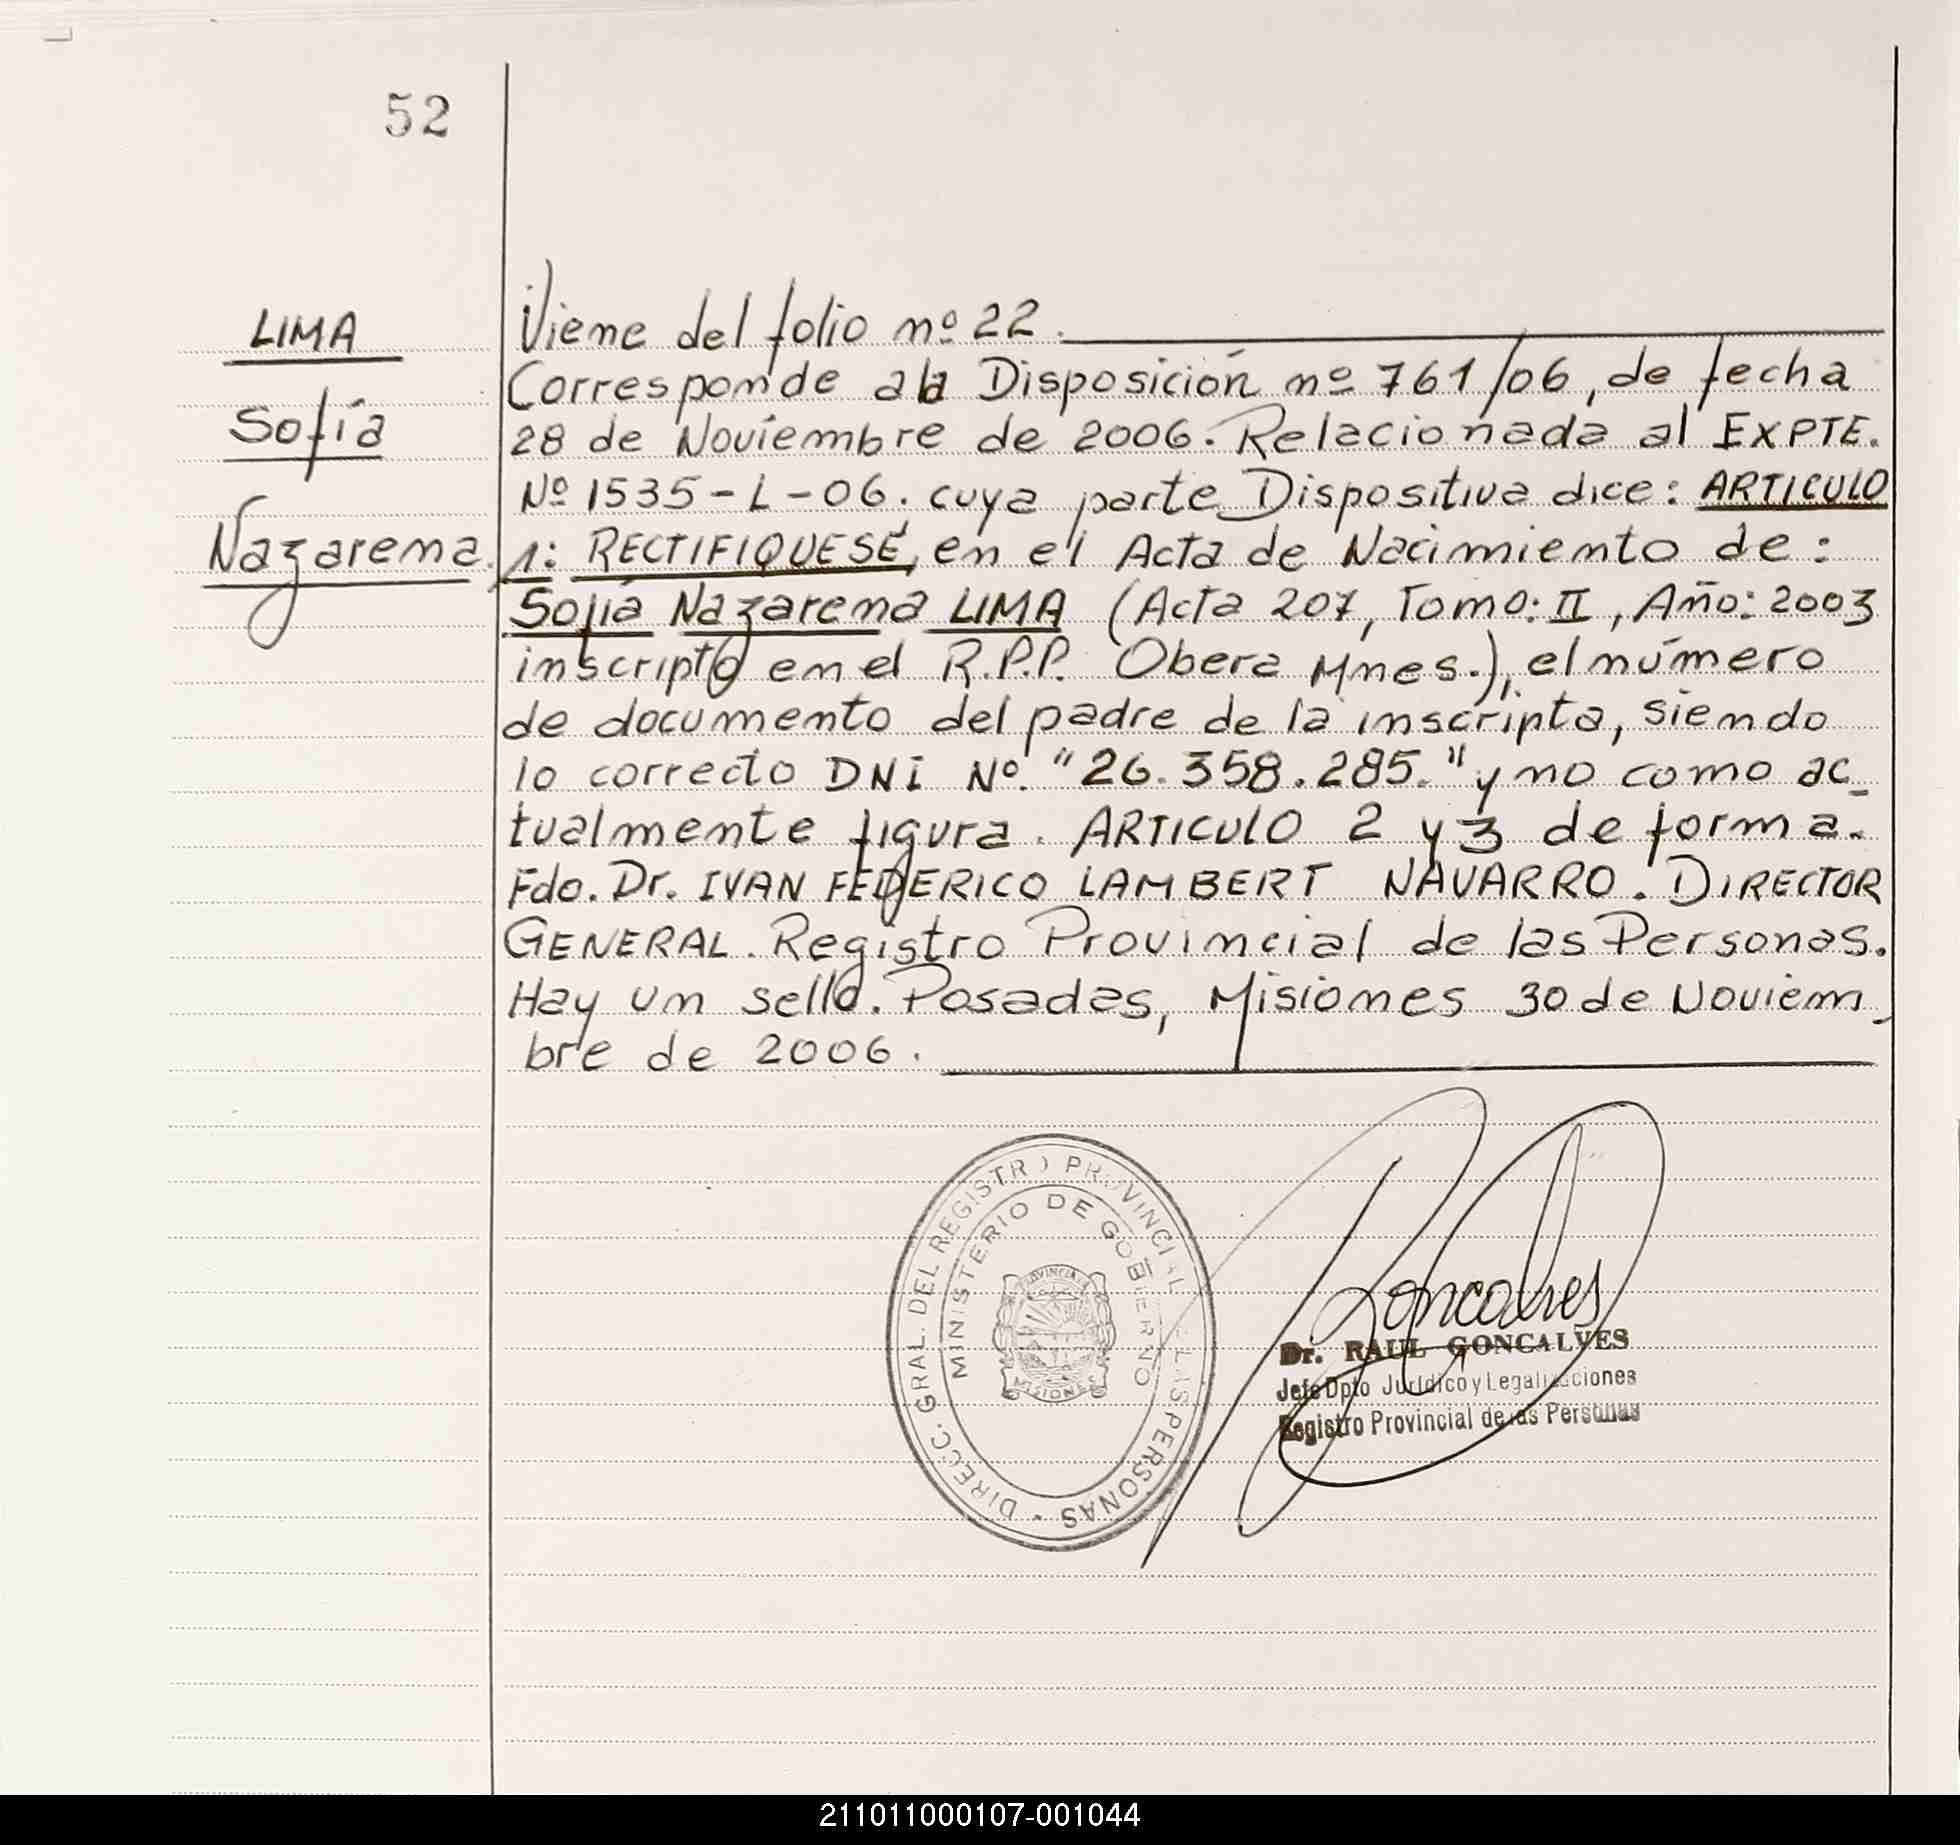 52
LIMA
Sofía
Nazarena.
Viene del folio nº 22.
Corresponde a la Disposición nº 761/06, de fecha
28 de Noviembre de 2006. Relacionada al EXPTE.
Nº 1535-L-06. cuya parte Dispositiva dice: ARTICULO
1: RECTIFIQUESE, en el Acta de Nacimiento de:
Sofía Nazarena LIMA (Acta 207, Tomo: II, Año: 2003
inscripto en el R.P.P. Obera Mnes.), el número
de documento del padre de la inscripta, siendo
lo correcto DNI Nº. "26.358.285." y no como ac_
tualmente figura. ARTICULO 2 y 3 de forma.
Fdo. Dr. IVAN FEDERICO LAMBERT NAVARRO. DIRECTOR
GENERAL. Registro Provincial de las Personas.
Hay un sello. Posadas, Misiones 30 de Noviem_
bre de 2006.
DIRECC. GRAL. DEL REGISTRO PROVINCIAL DE LAS PERSONAS
MINISTERIO DE GOBIERNO
PROVINCIA
MISIONES
Goncalves
Dr. RAUL GONCALVES
Jefe Dpto Jurídico y Legalizaciones
Registro Provincial de las Personas
211011000107-001044